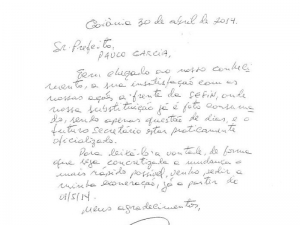 Goiânia 30 de abril de 2014.
Sr. Prefeito,
PAULO GARCIA,
Tem chegado ao nosso conheci
mento, a sua insatisfação com as
nossas ações a frente da SEFIN, onde
nossa substituição já é fato consuma
do, sendo apenas questão de dias, e o
futuro Secretário estar praticamente
oficializado.
Para deixá-lo a vontade, de forma
que seja concretizada a mudança o
mais rápido possível, venho, pedir a
minha exoneração, já a partir de
01/5/14.
Meus agradecimentos,